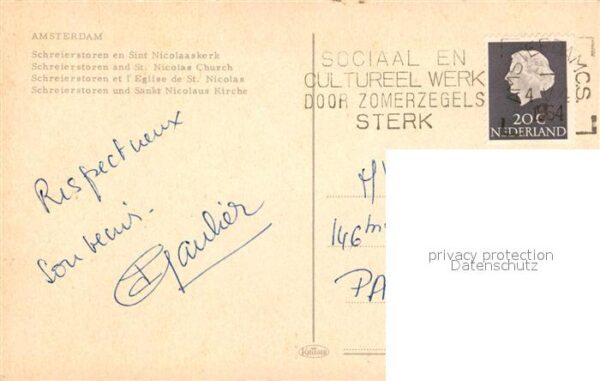 AMSTERDAM
Schreierstoren en Sint Nicolaaskerk
Schreierstoren and St. Nicolas Church
Schreierstoren et l'Eglise de St. Nicolas
Schreierstoren und Sankt Nicolaus Kirche
SOCIAAL EN
CULTUREEL WERK
DOOR ZOMERZEGELS
STERK
1964
20c
NEDERLAND
Respectueux
Souvenir.
Gaultier
146
PA
privacy protection
Datenschutz